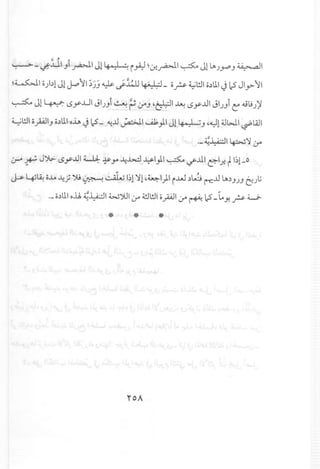 الصحيفة وصورها إلى مكتب المحضرين؛ ليقوم بتسليمها إلى المحضر أو المدعي – حسب
الأحوال كما في المادة الثانية عشرة – لتبليغها للمُدَّعى عليه ورَدّ الأصل إلى إدارة المحكمة؛
لإرفاقه مع أوراق الدعوى بعد التبليغ، ومن ثَمَّ بعث أوراق الدعوى جميعها إلى مكتب
القاضي المحالة إليه، وتسليمها إلى الموظف المختص لديه – كما في هذه المادة والفقرة الثانية
من لائحتها التنفيذية –.
٥- إذا لم يراجع المدعي مكتب المواعيد لتحديد موعد لجلسة الدعوى خلال شهر من
تاريخ ورودها لديهم فتُعاد لعدم المراجعة، إلا إذا تعلقت بسجين فلا تزيد مدة بقائها على
خمسة عشر يوماً – كما يفهم من الفقرة الثالثة من اللائحة التنفيذية لهذه المادة –.
٢٥٨